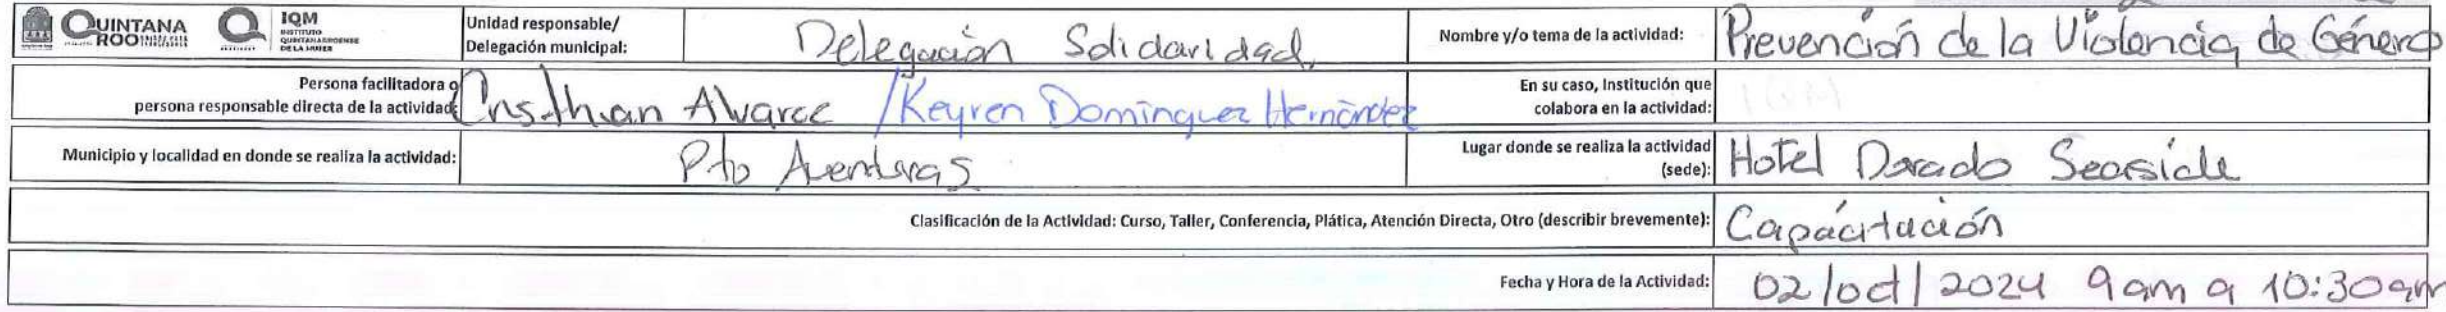 QUINTANA ROO
IQM
INSTITUTO
QUINTANARROENSE
DE LA MUJER
Unidad responsable/
Delegación municipal:
Delegación Solidaridad.
Nombre y/o tema de la actividad:
Prevención de la Violencia de Género
Persona facilitadora o
persona responsable directa de la actividad:
Cristhian Alvarez /Keyren Domínguez Hernández
En su caso, Institución que
colabora en la actividad:
Municipio y localidad en donde se realiza la actividad:
Pto Aventuras
Lugar donde se realiza la actividad
(sede):
Hotel Dorado Seaside
Clasificación de la Actividad: Curso, Taller, Conferencia, Plática, Atención Directa, Otro (describir brevemente):
Capacitación
Fecha y Hora de la Actividad:
02/oct/2024 9am a 10:30am